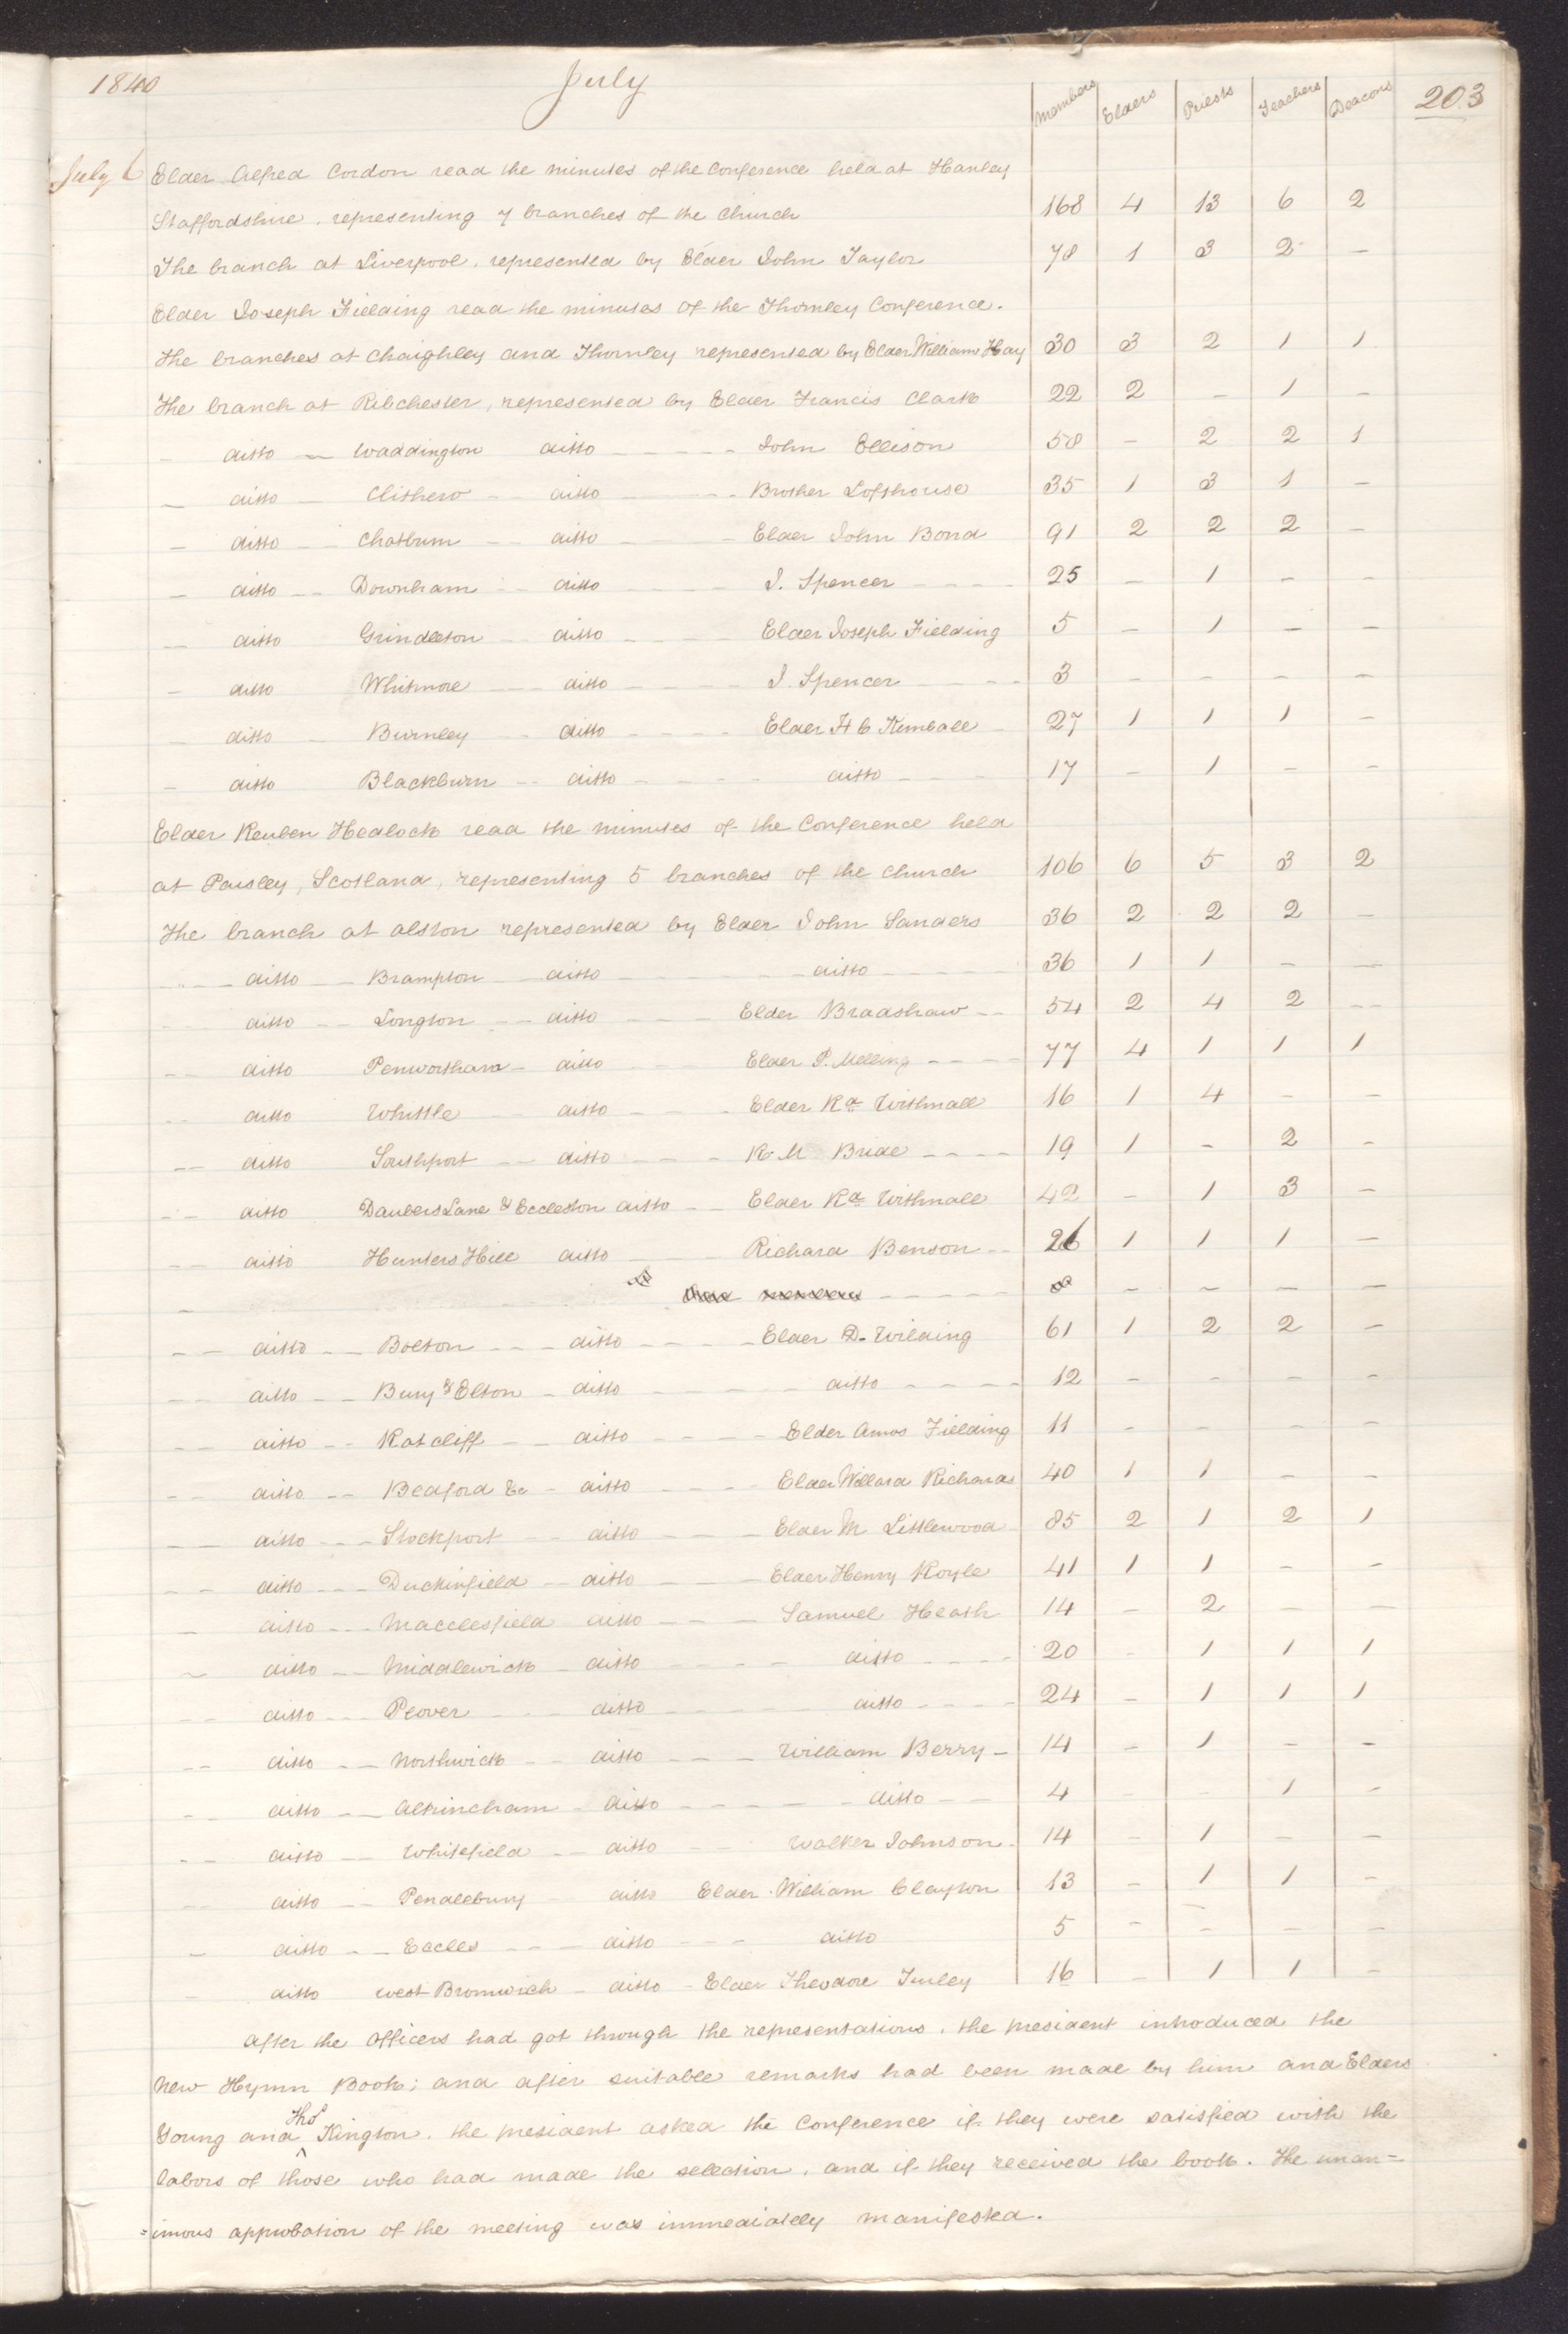 1840 July Members Elders Priests Teachers Deacons 203
July 6 Elder Alfred Cordon read the minutes of the Conference held at Hanley
Staffordshire, representing 7 branches of the Church 168 4 13 6 2
The branch at Liverpool, represented by Elder John Taylor 78 1 3 2 –
Elder Joseph Fielding read the minutes of the Thornley Conference.
The branches at Chaighley and Thornley represented by Elder William Hay 30 3 2 1 1
The branch at Ribchester, represented by Elder Francis Clark 22 2 – 1 –
– ditto – Waddington ditto – John Ellison 58 – 2 2 1
– ditto – Clithero – ditto – Brother Lofthouse 35 1 3 1 –
– ditto – Chatburn – ditto – Elder John Bond 91 2 2 2 –
– ditto – Downham – ditto – J. Spencer – 25 – 1 – –
– ditto Grindleton – ditto – Elder Joseph Fielding 5 – 1 – –
– ditto Whitmore – ditto – J. Spencer – 3 – – – –
– ditto – Burnley – ditto – Elder H C Kimball – 27 1 1 1 –
– ditto Blackburn – ditto – ditto – 17 – 1 – –
Elder Reuben Hedlock read the minutes of the Conference held
at Paisley, Scotland, representing 5 branches of the church 106 6 5 3 2
The branch at Alston represented by Elder John Sanders 36 2 2 2 –
– ditto – Brampton – ditto – ditto – 36 1 1 – –
ditto – Longton – ditto – Elder Bradshaw – 54 2 4 2 –
– ditto Penwortham – ditto Elder P. Melling – 77 4 1 1 1
– ditto Whittle – ditto – Elder Rd Withnall 16 1 4 – –
– ditto Southport – ditto – R. Mc Bride – 19 1 – 2 –
– ditto Daubers Lane & Eccleston ditto – Elder Rd Withnall 42 – 1 3 –
– ditto Hunters Hill ditto – Richard Benson – 26 1 1 1 –
– – – – – –
– ditto – Bolton – ditto – Elder D. Wilding 61 1 2 2 –
– ditto – Bury & Elton – ditto – ditto – 12 – – – –
– ditto – Ratcliff – ditto – Elder Amos Fielding 11 – – – –
– ditto – Bedford &c – ditto – Elder Willard Richards 40 1 1 – –
– ditto – Stockport – ditto – Elder M Littlewood 85 2 1 2 1
– ditto – Duckinfield – ditto – Elder Henry Royle 41 1 1 – –
– ditto – Macclesfield ditto – Samuel Heath 14 – 2 – –
– ditto – Middlewick – ditto – ditto – 20 – 1 1 1
– ditto – Peover – ditto – ditto – 24 – 1 1 1
– ditto – Northwick – ditto – William Berry – 14 – 1 – –
– ditto – Altrincham – ditto – ditto – 4 – 1 –
– ditto – Whitefield – ditto – Walker Johnson – 14 – 1 – –
– ditto – Pendlebury – ditto Elder William Clayton 13 – 1 1 –
– ditto – Eccles – ditto – ditto 5 – – – –
– ditto West Bromwich – ditto – Elder Theodore Turley 16 – 1 1 –
After the officers had got through the representations, the president introduced the
New Hymn Book; and after suitable remarks had been made by him and Elders
Young and Thos Kington. the president asked the Conference if they were satisfied with the
labors of those who had made the selection, and if they received the book. The unan=
=imous approbation of the meeting was immediately manifested.